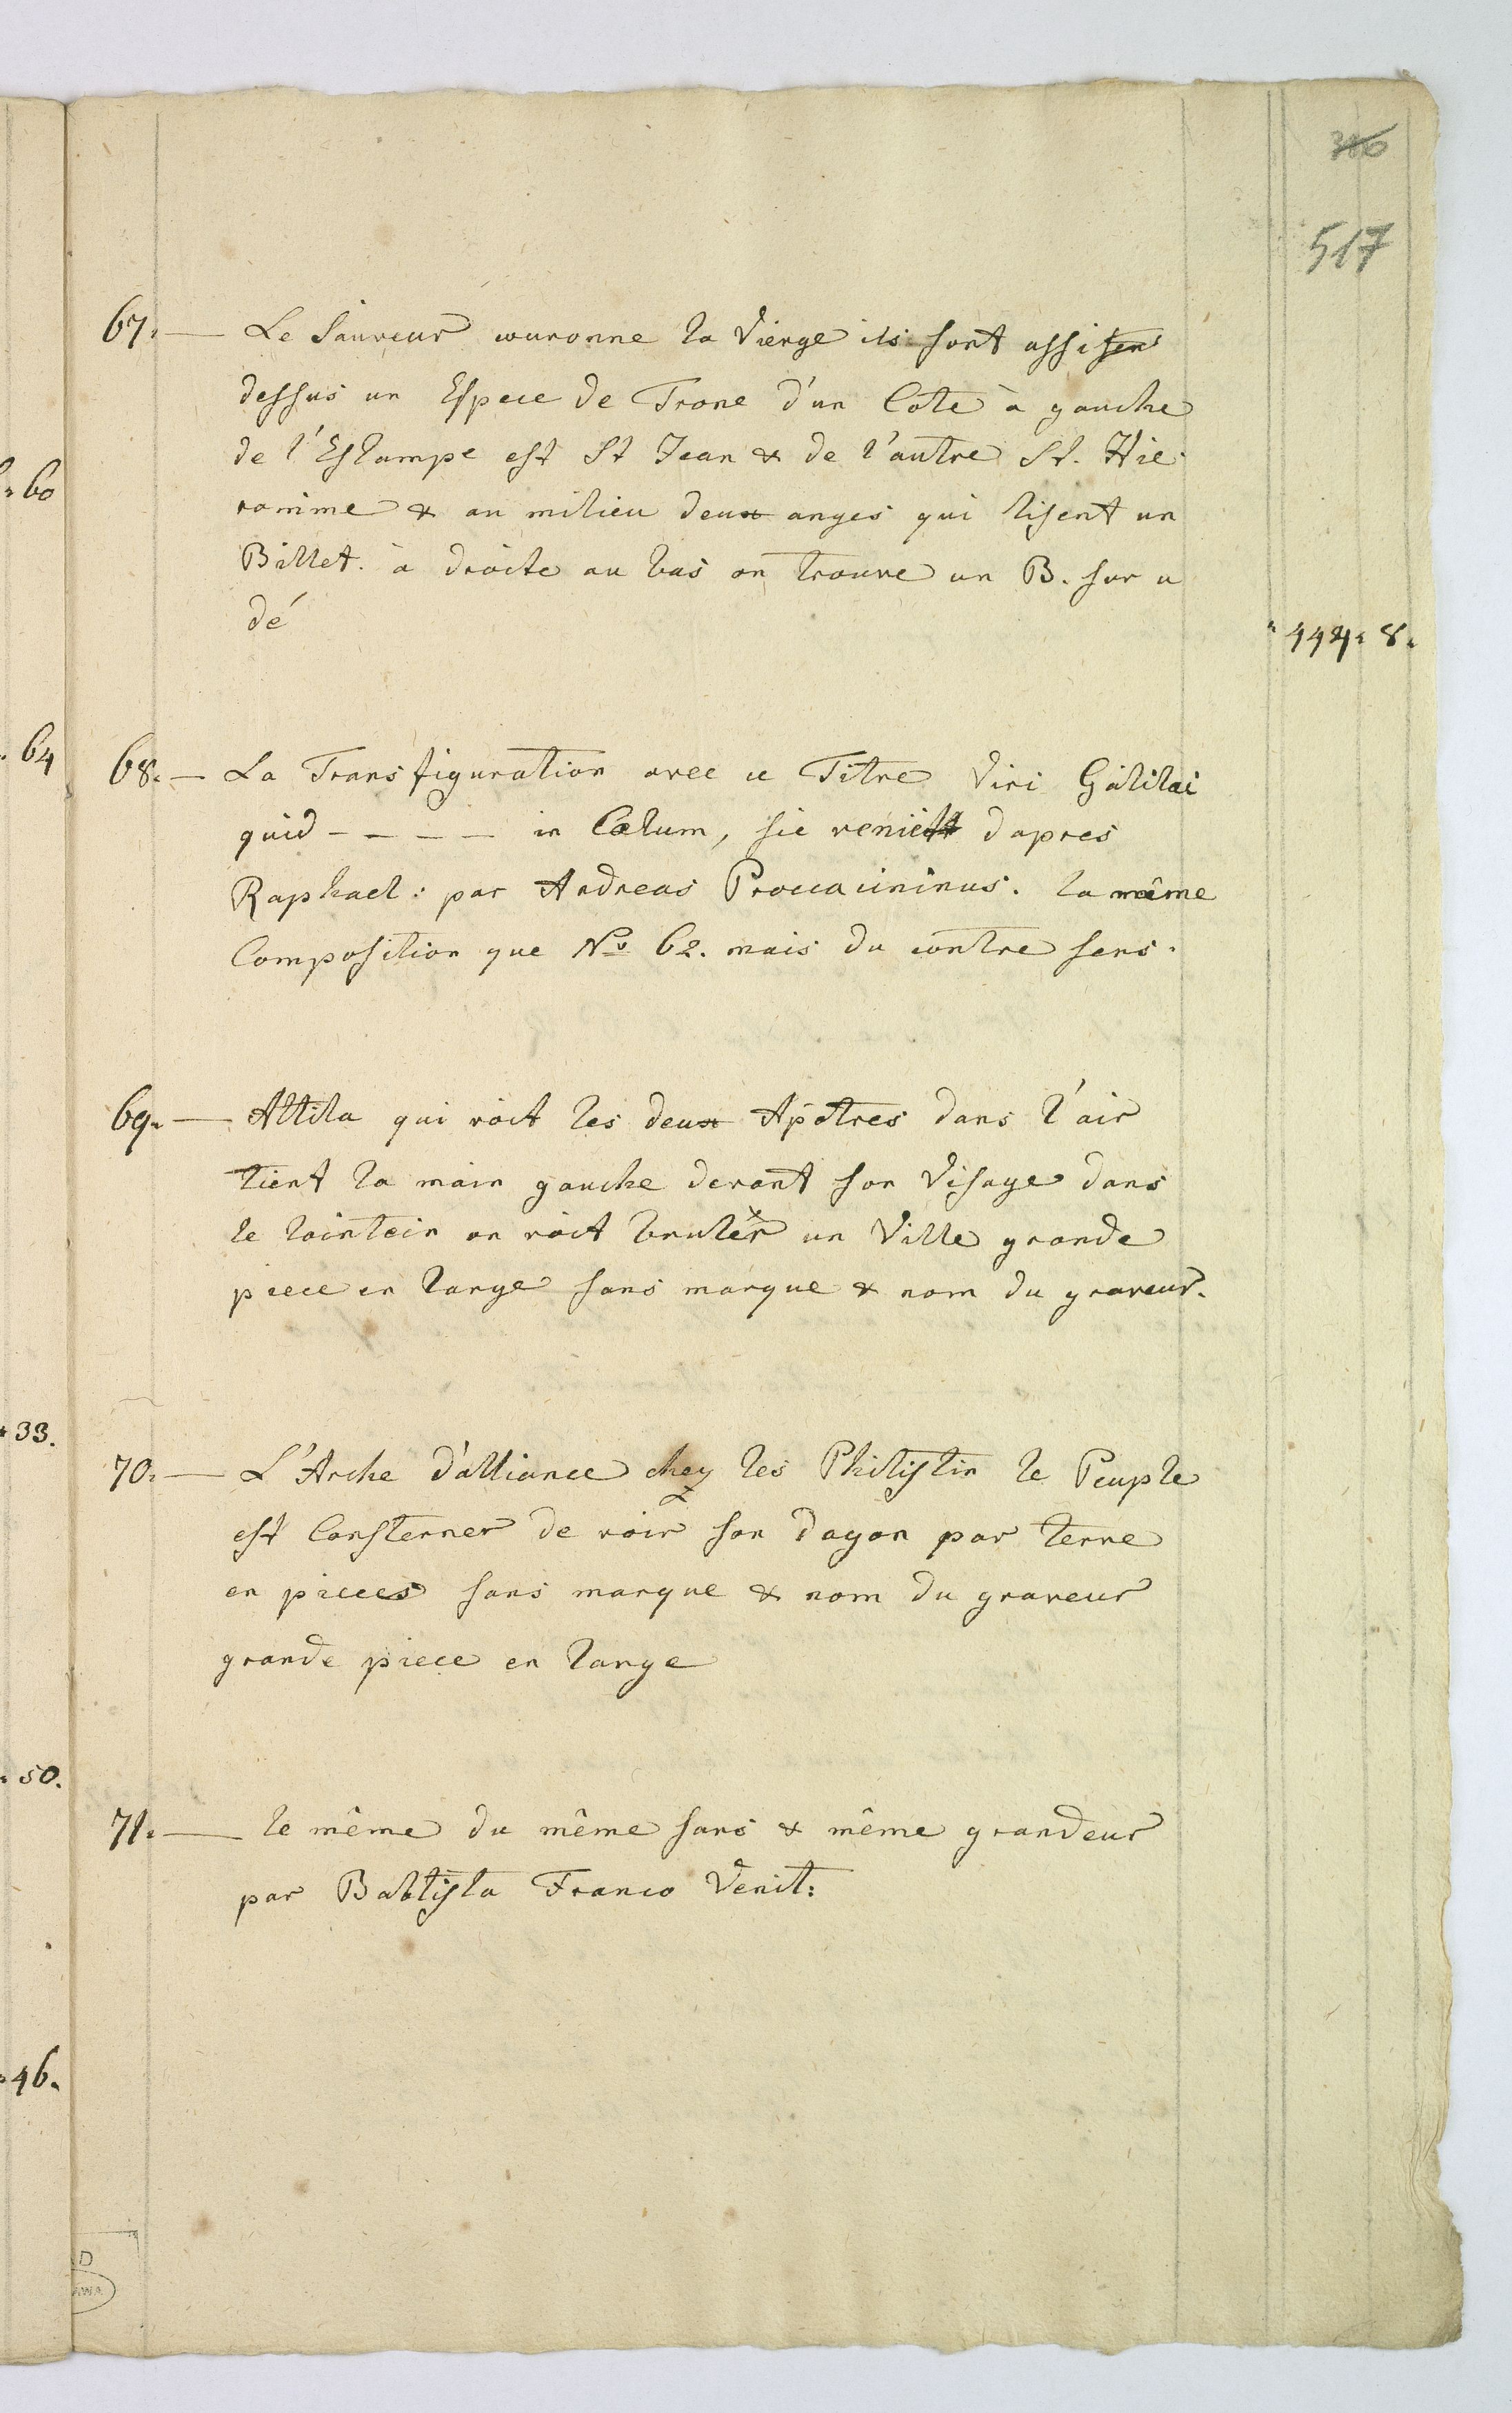 517
67. — Le Sauveur couronne la Vierge ils sont assi
dessus un Espece de Trone d'un Cote à gauche
de l'Estampe est St Jean & de l'autre St. Hie
ronime & au milieu deux anges qui lisent un
Billet. à droite au bas on trouve un B. sur u
dé
8.
68. — La Transfiguration avec ce Titre Viri Galilaei
quid - - - - in Cœlum, sic veniet d'apres
Raphael: par Andreas Proccacininus. la même
Composition que No 62. mais du contre sens.
69. — Attila qui voit les deux Apôtres dans l'air
tient la main gauche devant son Visage dans
le lointein on voit bruler un Ville grande
piece en large sans marque & nom du graveur.
70. — L'Arche d'alliance chez les Philistin le Peuple
est Consterner de voir son dagon par terre
en pieces sans marque & nom du graveur
grande piece en large
71. — le même du même sans & même grandeur
par Babtista Franco Venit:
60
64
33.
50.
46.